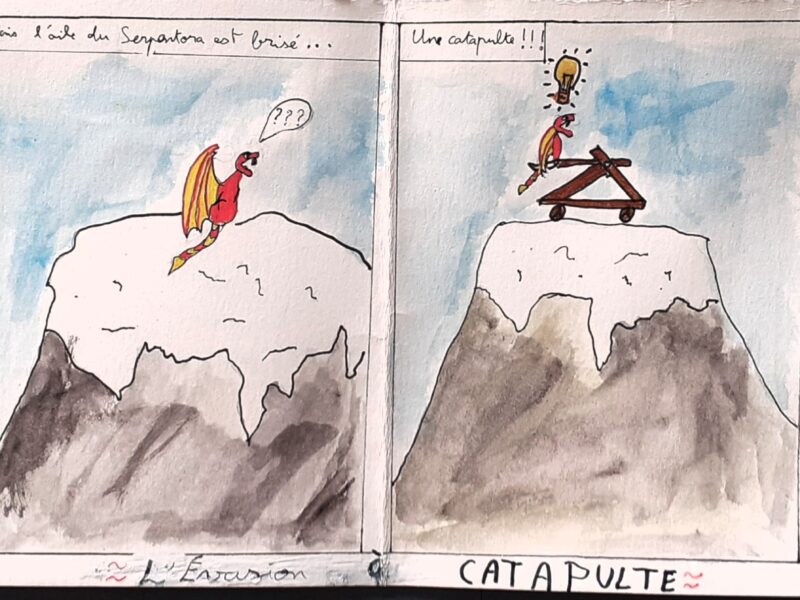 l'aile du Serpentora est brisé...
Une catapulte !!!
???
L'Évasion
à
CATAPULTE